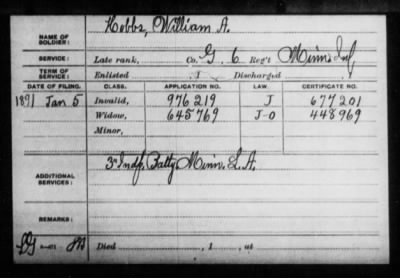 NAME OF SOLDIER: Hobbs, William A.
SERVICE: Late rank, Co. G, 6 Reg't Minn. Inf
TERM OF SERVICE: Enlisted , 1 Discharged
DATE OF FILING. CLASS. APPLICATION NO. LAW. CERTIFICATE NO.
1891 Jan 5 Invalid, 976219 J 677201
Widow, 645769 J-O 448969
Minor,
ADDITIONAL SERVICES: 3" Indp. Batty Minn. L. A.
REMARKS:
Died , 1 , at